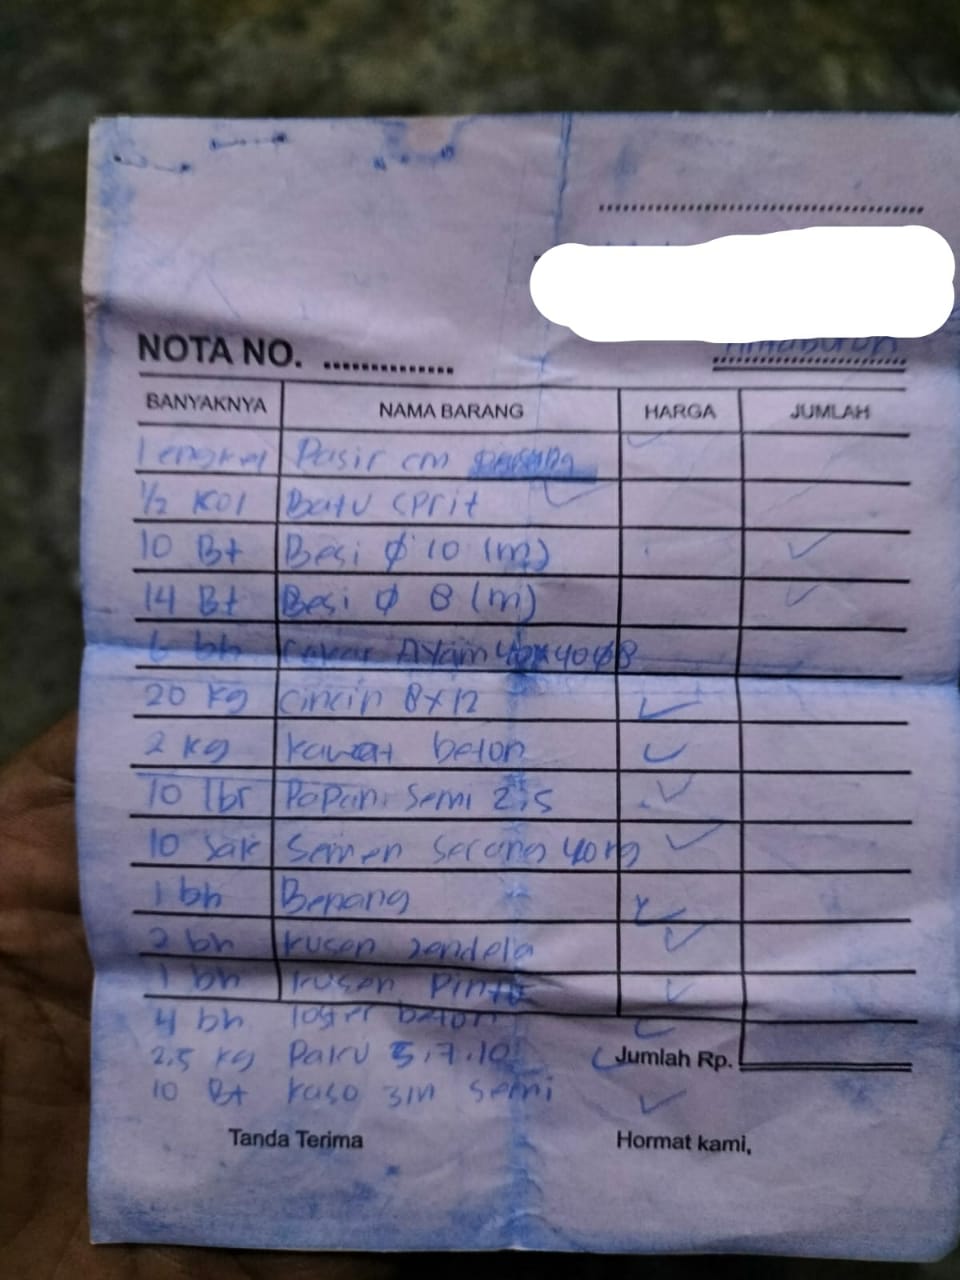 NOTA NO. ..............
BANYAKNYA NAMA BARANG HARGA JUMLAH
1 engkel Pasir cm
1/2 Kol Batu Cprit
10 Bt Besi Ø 10 (m)
14 Bt Besi Ø 8 (m)
6 bh Cakar Ayam 40x40Ø8
20 kg Cincin 8x12
2 kg kawat beton
10 lbr Papan Semi 2,5
10 Sak Semen Serang 40 kg
1 bh Benang
2 bh kusen Jendela
1 bh kusen Pintu
4 bh loster beton
2.5 kg Paku 5.7.10
Jumlah Rp.
10 Bt kaso 3m semi
Tanda Terima Hormat kami,